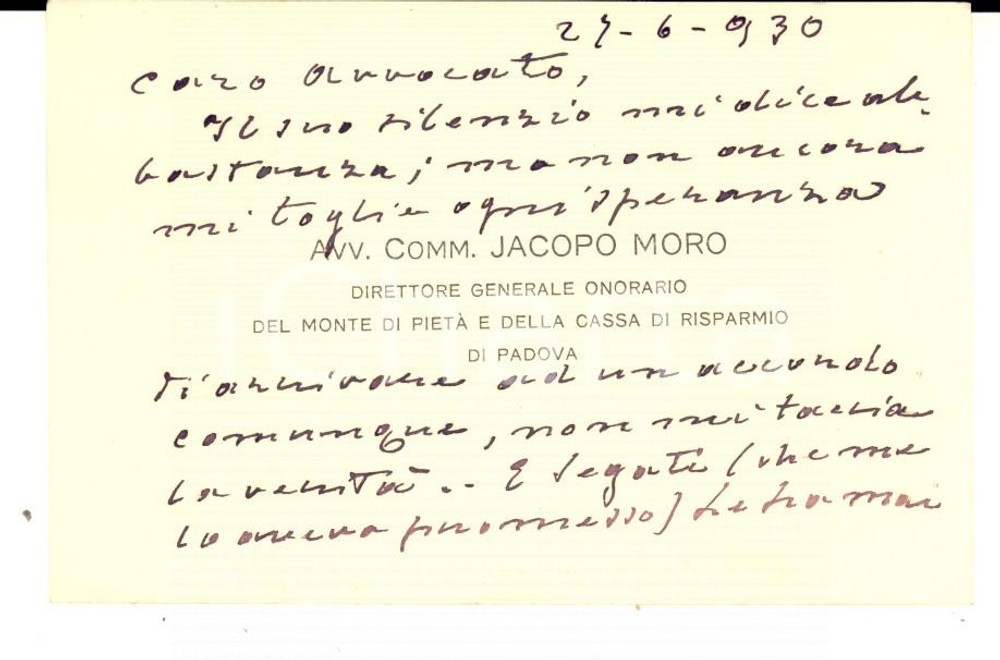 27-6-930
Caro Avvocato,
Il suo silenzio mi dice ab-
bastanza; ma non ancora
mi toglie ogni speranza
AVV. COMM. JACOPO MORO
DIRETTORE GENERALE ONORARIO
DEL MONTE DI PIETÀ E DELLA CASSA DI RISPARMIO
DI PADOVA
di arrivare ad un accordo
comunque, non mi taccia
la verità .. E Segati (che me
lo aveva promesso) Le ha mai